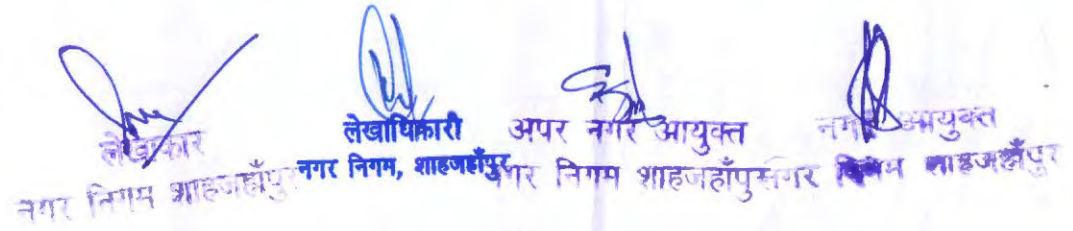 लेखाकार
नगर निगम शाहजहाँपुर
लेखाधिकारी
नगर निगम, शाहजहाँपुर
अपर नगर आयुक्त
नगर निगम शाहजहाँपुर
नगर आयुक्त
नगर निगम शाहजहाँपुर